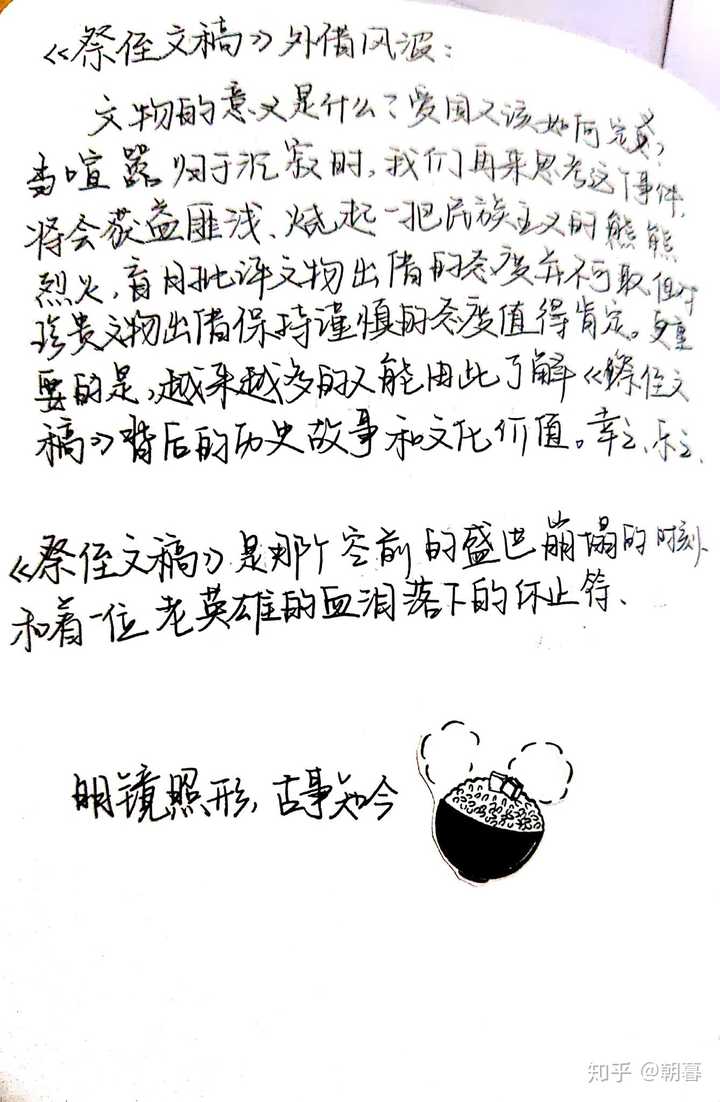 《祭侄文稿》外借风波:
文物的意义是什么?爱国又该如何完成?
当喧嚣归于沉寂时,我们再来思考这个事件,
将会获益匪浅、燃起一把民族主义的熊熊
烈火,盲目批评文物出借的态度并不可取但对
珍贵文物出借保持谨慎的态度值得肯定。更重
要的是,越来越多的人能由此了解《祭侄文
稿》背后的历史故事和文化价值。幸之、乐之、
《祭侄文稿》是那个空前的盛世崩塌的时刻、
和着一位老英雄的血泪落下的休止符、
明镜照形,古事知今
知乎 @朝暮